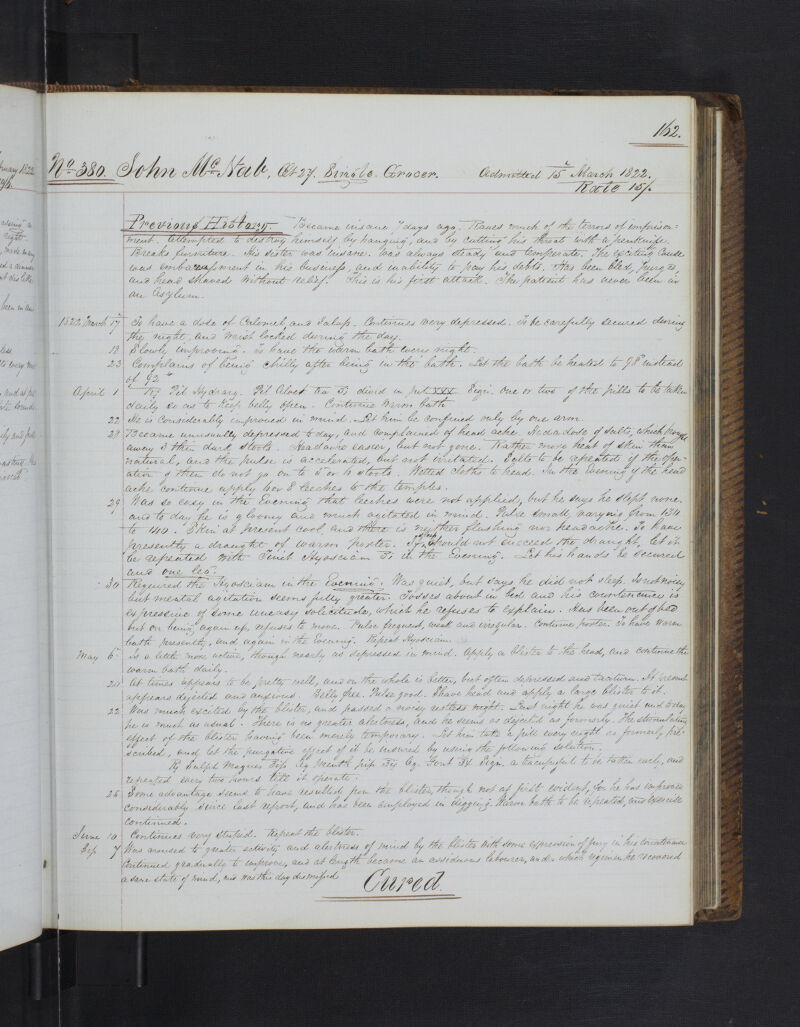 162.
No. 380. John McNab, Æt 27. Single. Grocer. Admitted 15th March 1822.
Rate 15/.
Previous History Became insane 7 days ago. Raves much of the terrors of imprison-
ment. Attempted to destroy himself by hanging, and by cutting his throat with a penknife.
Breaks furniture. His sister was insane. Was always steady and temperate. The exciting cause
was embarrassment in his business, and inability to pay his debts. Has been bled, purged,
and head shaved without relief. This is his first attack. The patient has never been in
an Asylum.
1822 March 17 To have a dose of Calomel and Jalap. Continues very depressed. To be carefully secured during
the night, and wrist locked during the day.
19 Slowly improving. To have the warm bath every night.
23 Complains of being chilly after being in the bath. Let the bath be heated to 98° instead
of 92°
April 1 Rx Pil Hydrarg. Pil Aloet aa ʒi divid in pil XXX Sign. one or two of the pills to be taken
daily so as to keep belly open. Continue warm bath
22 He is considerably improved in mind. Let him be confined only by one arm.
28 Became unusually depressed today, and complained of head ache. Had a dose of salts, which brought
away 3 thin dark stools. Headache easier, but not gone. Rather more heat of skin than
natural, and the pulse is accelerated, but not irritated. Salts to be repeated if the oper-
ation of them do not go on to 5 or 6 stools. Wetted cloths to head. In the Evening if the head
ache continue apply 6 or 8 leeches to the temples.
29 Was so easy in the Evening that leeches were not applied, but he says he slept none.
and to day he is gloomy and much agitated in mind. Pulse small, varying from 134
to 140. Skin at present cool and there is neither flushing nor headache. To have
presently a draught of warm porter. If sleep should not succeed the draught, let it
be repeated with Tinct Hyosciam ʒi in the Evening. Let his hands be secured
and one leg.
30 Required the Hyosciam in the Evening. Was quiet, but says he did not sleep. Is not noisy
but mental agitation seems fully greater. Tosses about in bed and his countenance is
expressive of some uneasy solicitude, which he refuses to explain. Has been out of bed
but on being again up, refuses to move. Pulse frequent, weak and irregular. Continue porter. To have warm
bath presently, and again in the Evening. Repeat Hyosciam
May 6 Is a little more active, though nearly as depressed in mind. Apply a blister to the head, and continue the
warm bath daily.
20 At times appears to be pretty well, and on the whole is better, but often depressed and taciturn. At present
appears dejected and anxious. Belly free. Pulse good. Shave head and apply a large blister to it.
22 Was much excited by the blister, and passed a noisy restless night. Last night he was quiet and today
he is much as usual. There is no greater alertness, and he seems as dejected as formerly, the stimulating
effect of the blister having been merely temporary. Let him take a pill every night as formerly pre-
scribed, and let the purgative effect of it be insured by using the following solution.
Rx Sulph Magnes Aq Menth pip Aq. Font Sign. a teacupful to be taken early, and
repeated every two hours till it operate.
26 Some advantage seems to have resulted from the blister, though not at first evident, for he has improved
considerably since last report, and has been employed in digging. Warm bath to be repeated, and exercise
continued.
June 10 Continues very stupid. Repeat the blister.
Sep. 7 Was roused to greater activity and alertness of mind by the blister with some expression of fury in his countenance
Continued gradually to improve, and at length became an assiduous labourer, under which regimen he recovered
a sane state of mind, and was this day dismissed
Cured.